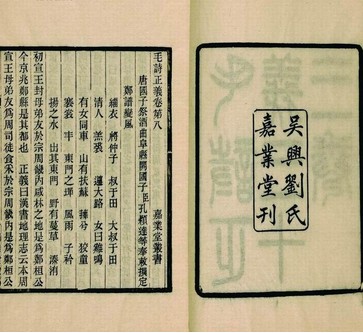 吳興劉氏
嘉業堂刊
毛詩正義卷第八 嘉業堂叢書
唐國子祭酒曲阜縣開國子臣孔穎達等奉敕撰定
鄭譜變風
緇衣 將仲子 叔于田 大叔于田
清人 羔裘 遵大路 女曰雞鳴
有女同車 山有扶蘇 蘀兮 狡童
褰裳 丰 東門之墠 風雨 子衿
揚之水 出其東門 野有蔓草 溱洧
初宣王封母弟友於宗周畿內咸林之地是爲鄭桓公
今京兆鄭縣是其都也 正義曰漢書地理志云本周
宣王母弟友爲周司徒食采於宗周畿內是爲鄭桓公